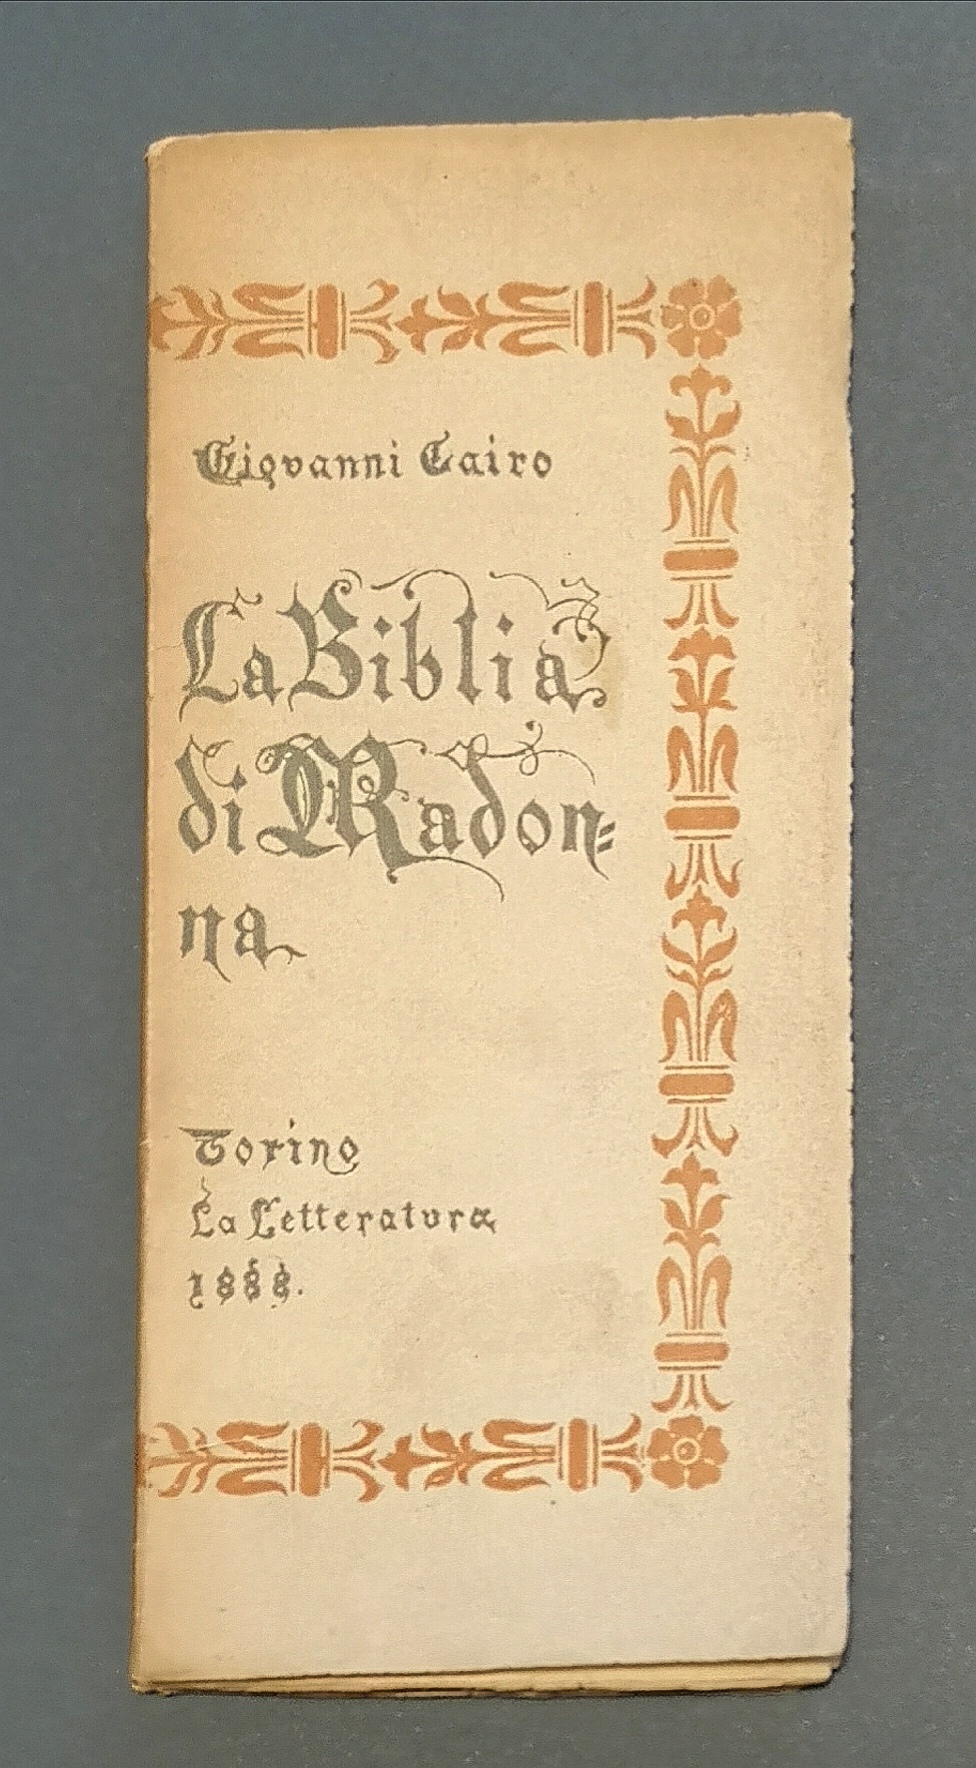 Giovanni Cairo
La Biblia
di Madon=
na
Torino
La Letteratura
1888.